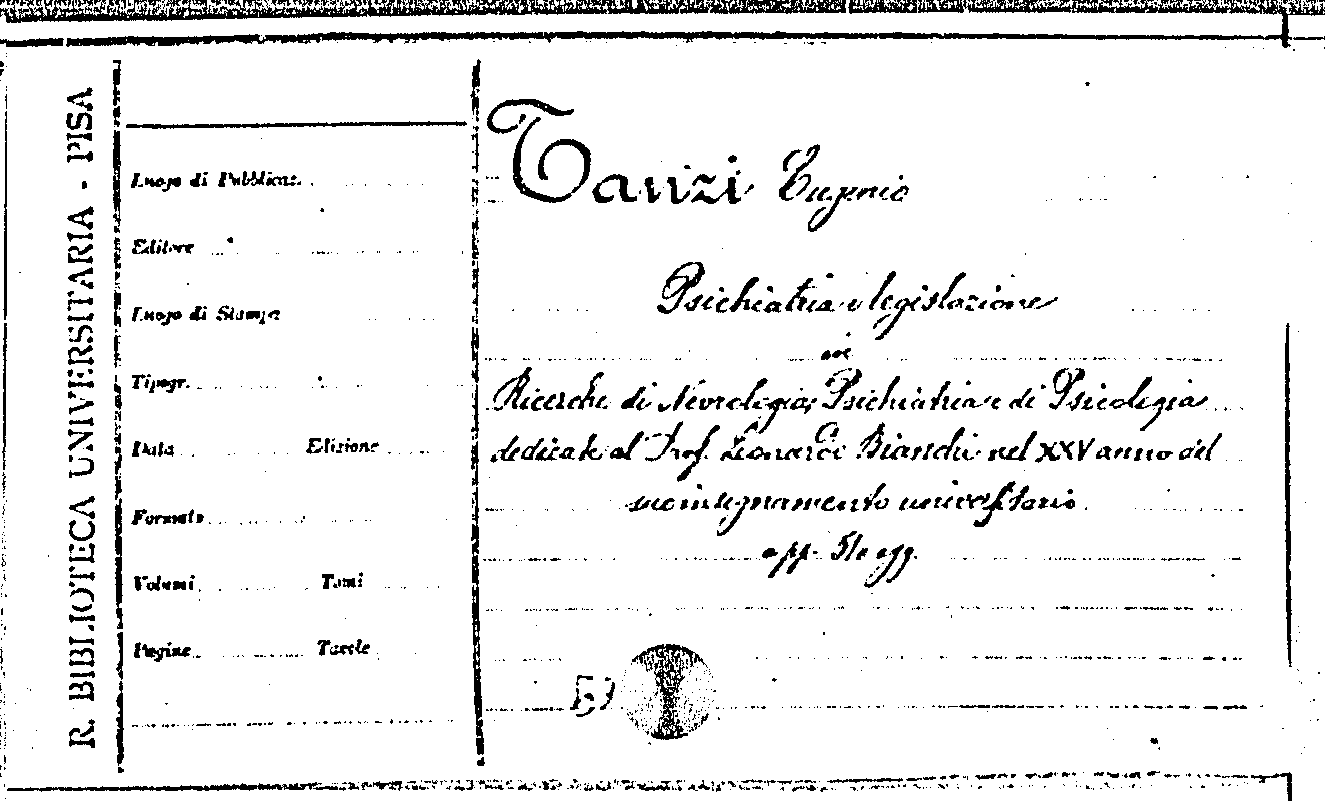 R. BIBLIOTECA UNIVERSITARIA - PISA
Luogo di Pubblicaz.
Editore
Luogo di Stampa
Tipogr.
Data Edizione
Formato
Volumi Tomi
Pagine Tavole
Tanzi Eugenio
Psichiatria e legislazione
Ricerche di Nevrologia, Psichiatria e di Psicologia
dedicate al Prof. Leonardo Bianchi nel XXV anno del
suo insegnamento universitario
a pp. egg.